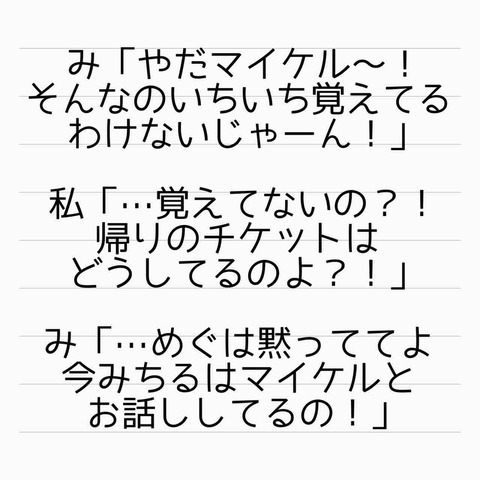 み「やだマイケル〜！
そんなのいちいち覚えてる
わけないじゃーん！」
私「…覚えてないの？！
帰りのチケットは
どうしてるのよ？！」
み「…めぐは黙っててよ
今みちるはマイケルと
お話ししてるの！」